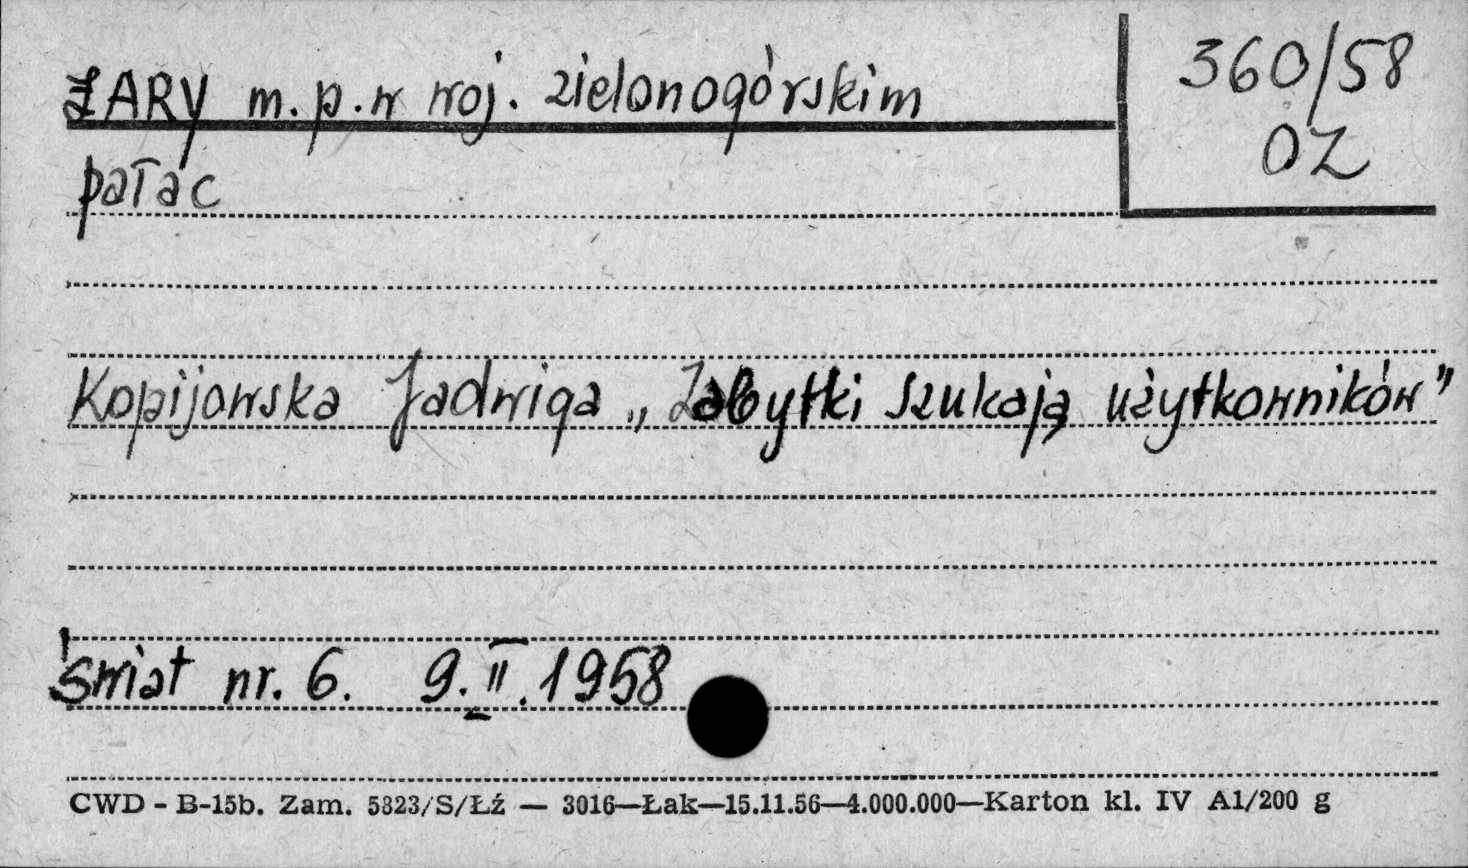 ŻARY m.p. w woj. zielonogórskim
360/58
OZ
pałac
Kopijowska Jadwiga „Zabytki szukają użytkowników”
Świat nr. 6. 9.II.1958
CWD - B-15b. Zam. 5323/S/Łź — 3016—Łak—15.11.56—4.000.000—Karton kl. IV A1/200 g